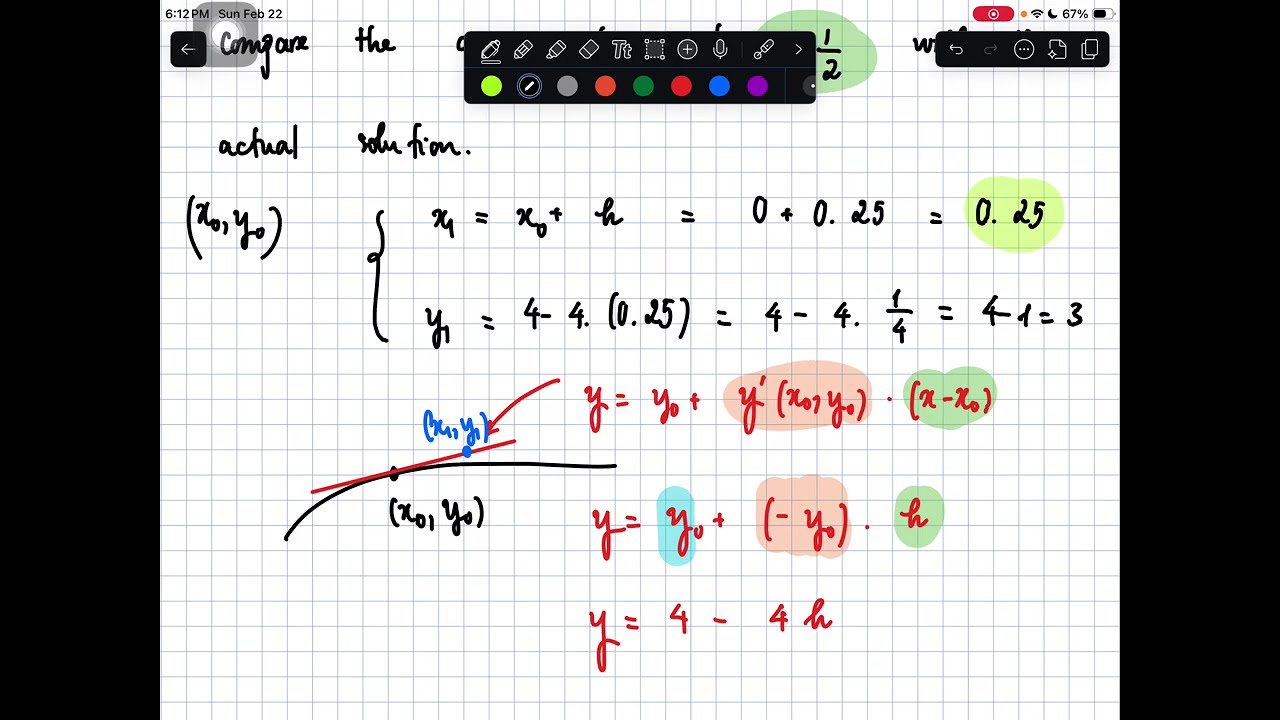 6:12 PM Sun Feb 22
67%
Compare the 1/2
Tt
actual solution.
(x₀, y₀)
{ x₁ = x₀ + h = 0 + 0.25 = 0.25
y₁ = 4 - 4. (0.25) = 4 - 4. 1/4 = 4 - 1 = 3
y = y₀ + y'(x₀, y₀) · (x - x₀)
(x₁, y₁)
(x₀, y₀)
y = y₀ + (- y₀) . h
y = 4 - 4 h